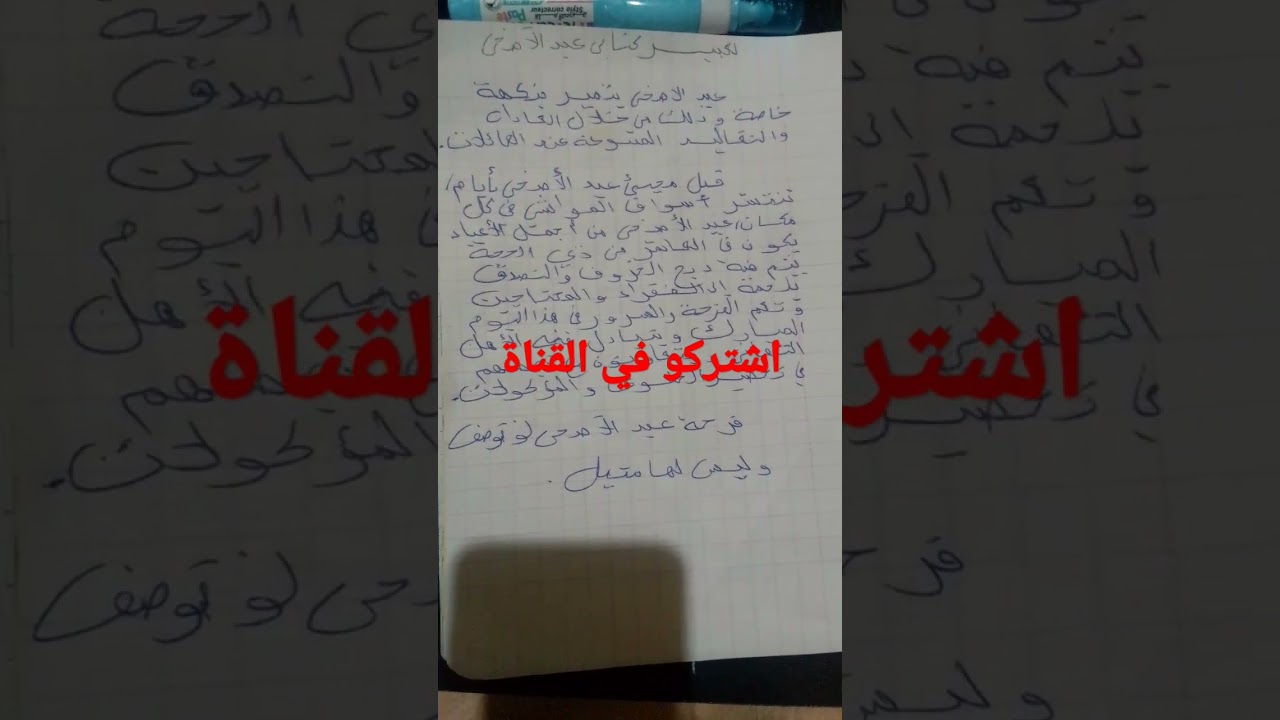 تعبير كتابي عيد الأضحى
عيد الأضحى يتميز بنكهة
خاصة وذلك من خلال العادات
والتقاليد المتنوعة عند العائلات.
قبل مجيئ عيد الأضحى بأيام،
تنتشر أسواق المواشي في كل
مكان، عيد الأضحى من أجمل الأعياد
يكون في العاشر من ذي الحجة
يتم فيه ذبح الخروف والتصدق
بلحمة إلى الفقراء والمحتاجين
وتعم الفرحة والسرور في هذا اليوم
المبارك ويتبادل فيه الأهل
اشتركو في القناة
في تحضير والمؤكولات.
فرحة عيد الأضحى لا توصف
وليس لها مثيل.